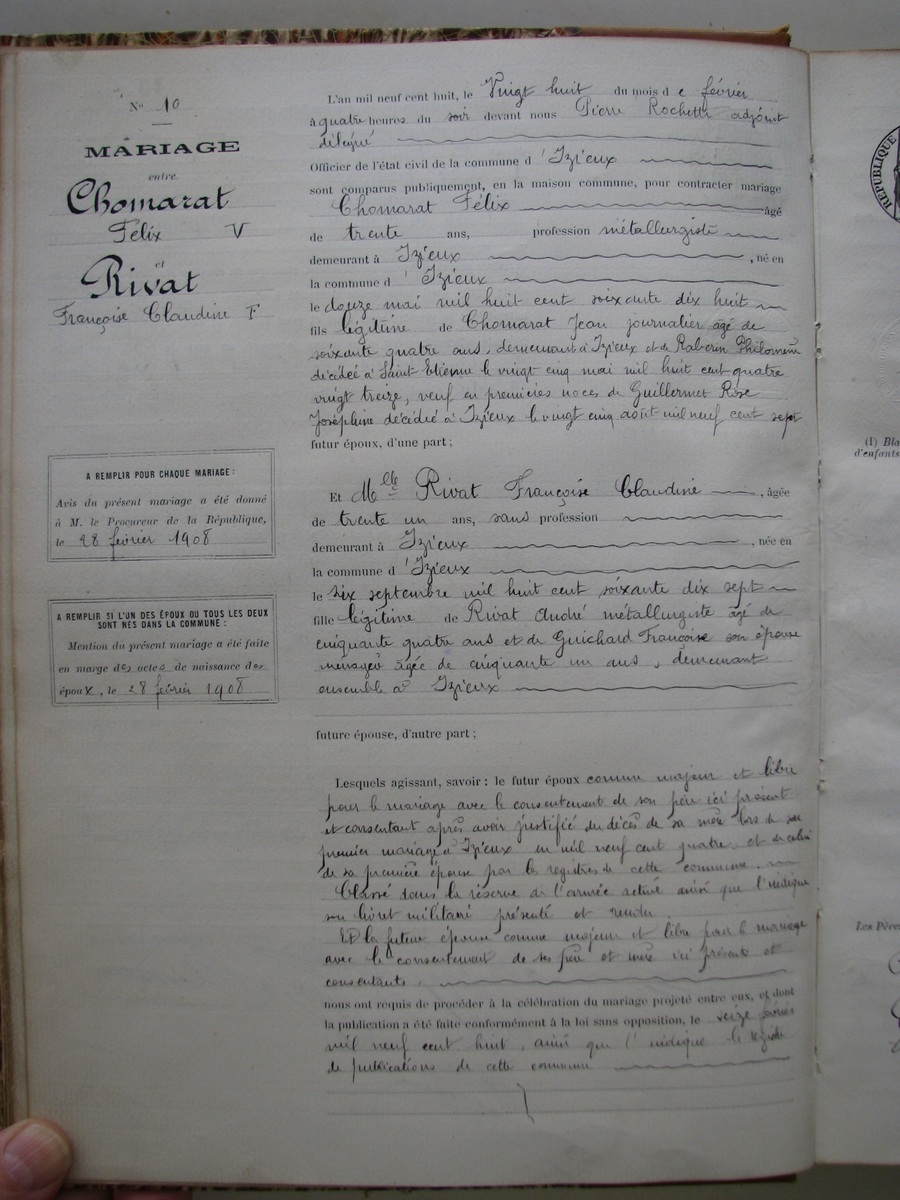 N° 10
MARIAGE
entre
Chomarat
Félix V
et
Rivat
Françoise Claudine F
A REMPLIR POUR CHAQUE MARIAGE :
Avis du présent mariage a été donné
à M. le Procureur de la République,
le 28 février 1908
A REMPLIR SI L'UN DES ÉPOUX OU TOUS LES DEUX
SONT NÉS DANS LA COMMUNE :
Mention du présent mariage a été faite
en marge des actes de naissance des
époux, le 28 février 1908
L'an mil neuf cent huit, le Vingt huit du mois de février
à quatre heures du soir devant nous Pierre Rochette adjoint
délégué
Officier de l'état civil de la commune d'Izieux
sont comparus publiquement, en la maison commune, pour contracter mariage
Chomarat Félix âgé
de trente ans, profession métallurgiste
demeurant à Izieux, né en
la commune d'Izieux
le douze mai mil huit cent soixante dix huit
fils légitime de Chomarat Jean journalier âgé de
soixante quatre ans, demeurant à Izieux et de Raberin Philomène
décédée à Saint Etienne le vingt cinq mai mil huit cent quatre
vingt treize, veuf en premières noces de Guillermet Rose
Joséphine décédée à Izieux le vingt cinq août mil neuf cent sept
futur époux, d'une part ;
Et Mlle Rivat Françoise Claudine, âgée
de trente un ans, sans profession
demeurant à Izieux, née en
la commune d'Izieux
le six septembre mil huit cent soixante dix sept
fille légitime de Rivat André métallurgiste âgé de
cinquante quatre ans et de Guichard Françoise son épouse
ménagère âgée de cinquante un ans, demeurant
ensemble à Izieux
future épouse, d'autre part ;
Lesquels agissant, savoir : le futur époux comme majeur et libre
pour le mariage avec le consentement de son père ici présent
et consentant après avoir justifié du décès de sa mère lors de son
premier mariage à Izieux en mil neuf cent quatre, et de celui
de sa première épouse par les registres de cette commune.
Classé dans la réserve de l'armée active ainsi que l'indique
son livret militaire présenté et rendu.
Et la future épouse comme majeure et libre pour le mariage
avec le consentement de ses père et mère ici présents et
consentants.
nous ont requis de procéder à la célébration du mariage projeté entre eux, et dont
la publication a été faite conformément à la loi sans opposition, le seize février
mil neuf cent huit, ainsi que l'indique le registre
de publications de cette commune
RÉPUBLIQUE
(1) Bla
d'enfants
Les Père